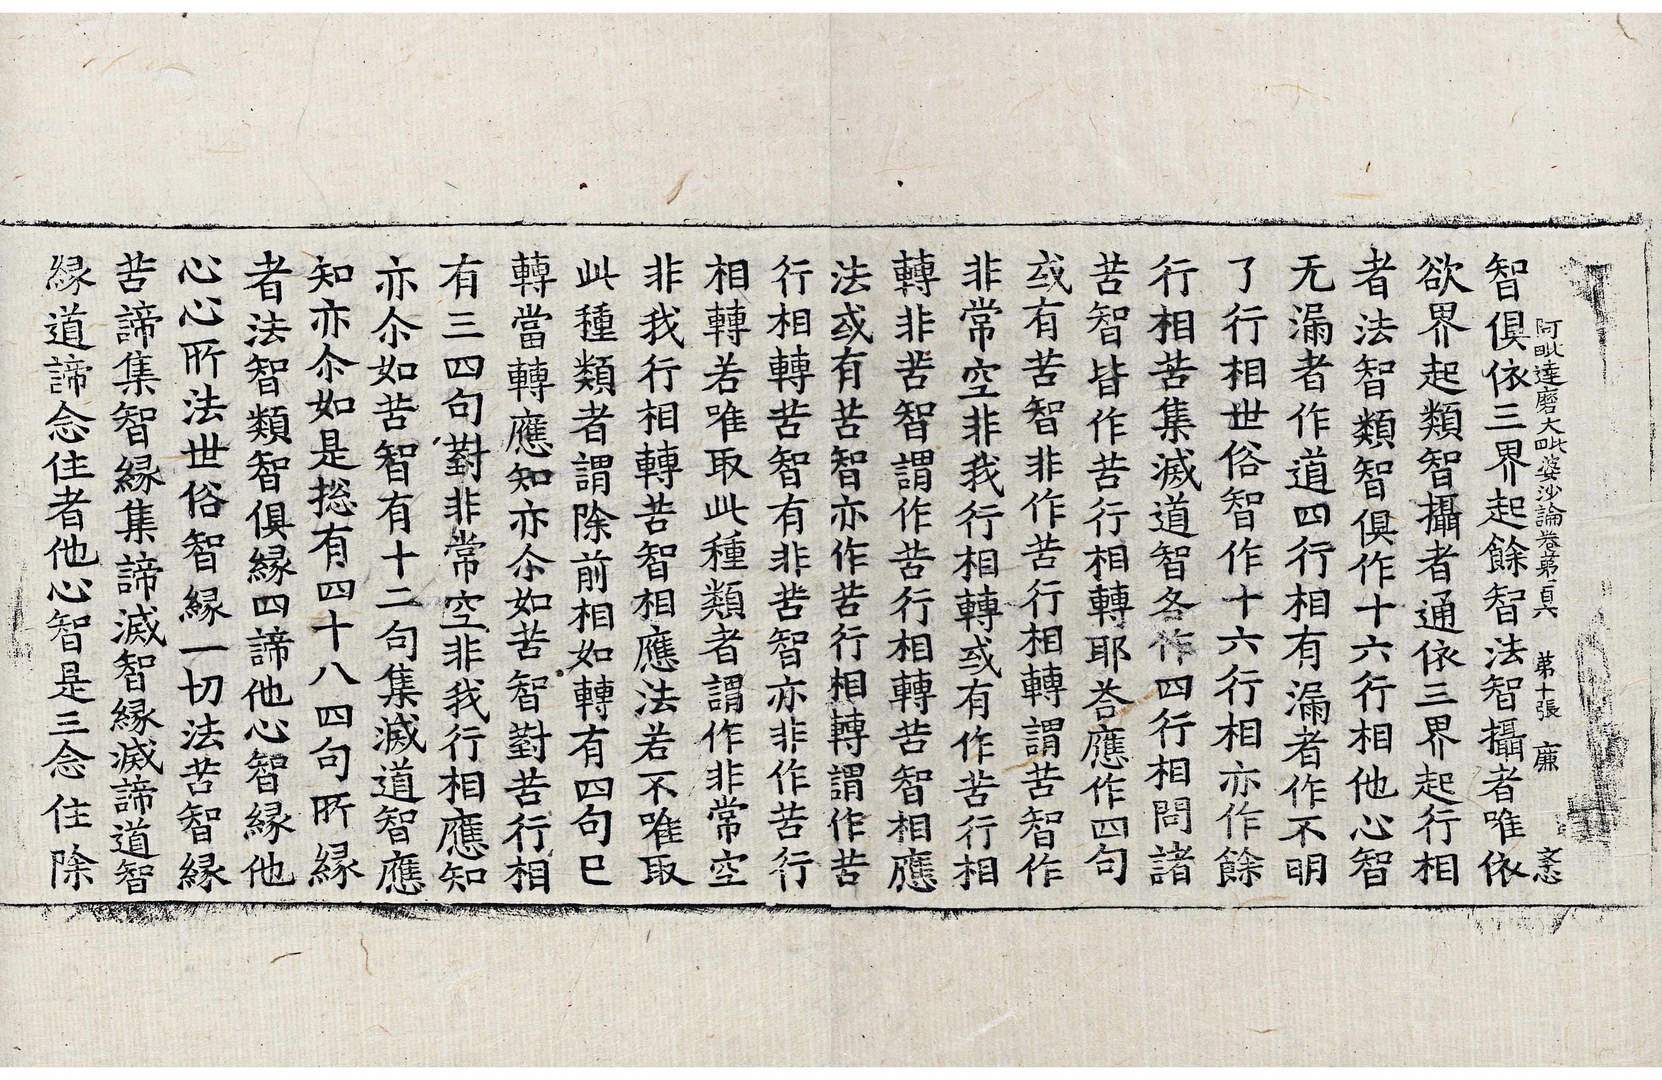 阿毗達磨大毗婆沙論卷苐一百六 苐十張 廉
智俱依三界起餘智法智攝者唯依
欲界起類智攝者通依三界起行相
者法智類智俱作十六行相他心智
无漏者作道四行相有漏者作不明
了行相世俗智作十六行相亦作餘
行相苦集滅道智各作四行相問諸
苦智皆作苦行相轉耶荅應作四句
或有苦智非作苦行相轉謂苦智作
非常空非我行相轉或有作苦行相
轉非苦智謂作苦行相轉苦智相應
法或有苦智亦作苦行相轉謂作苦
行相轉苦智有非苦智亦非作苦行
相轉若唯取此種類者謂作非常空
非我行相轉苦智相應法若不唯取
此種類者謂除前相如轉有四句已
轉當轉應知亦尒如苦智對苦行相
有三四句對非常空非我行相應知
亦尒如苦智有十二句集滅道智應
知亦尒如是揔有四十八四句所緣
者法智類智俱緣四諦他心智緣他
心心所法世俗智緣一切法苦智緣
苦諦集智緣集諦滅智緣滅諦道智
緣道諦念住者他心智是三念住除